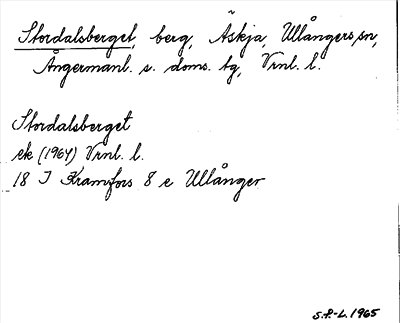 Stordalsberget, berg, Äskja, Ullångers sn,
Ångermanl. s. doms. tg, Vrnl. l.
Stordalsberget
ek (1964) Vrnl. l.
18 I Kramfors 8 e Ullånger
S.P.-L. 1965